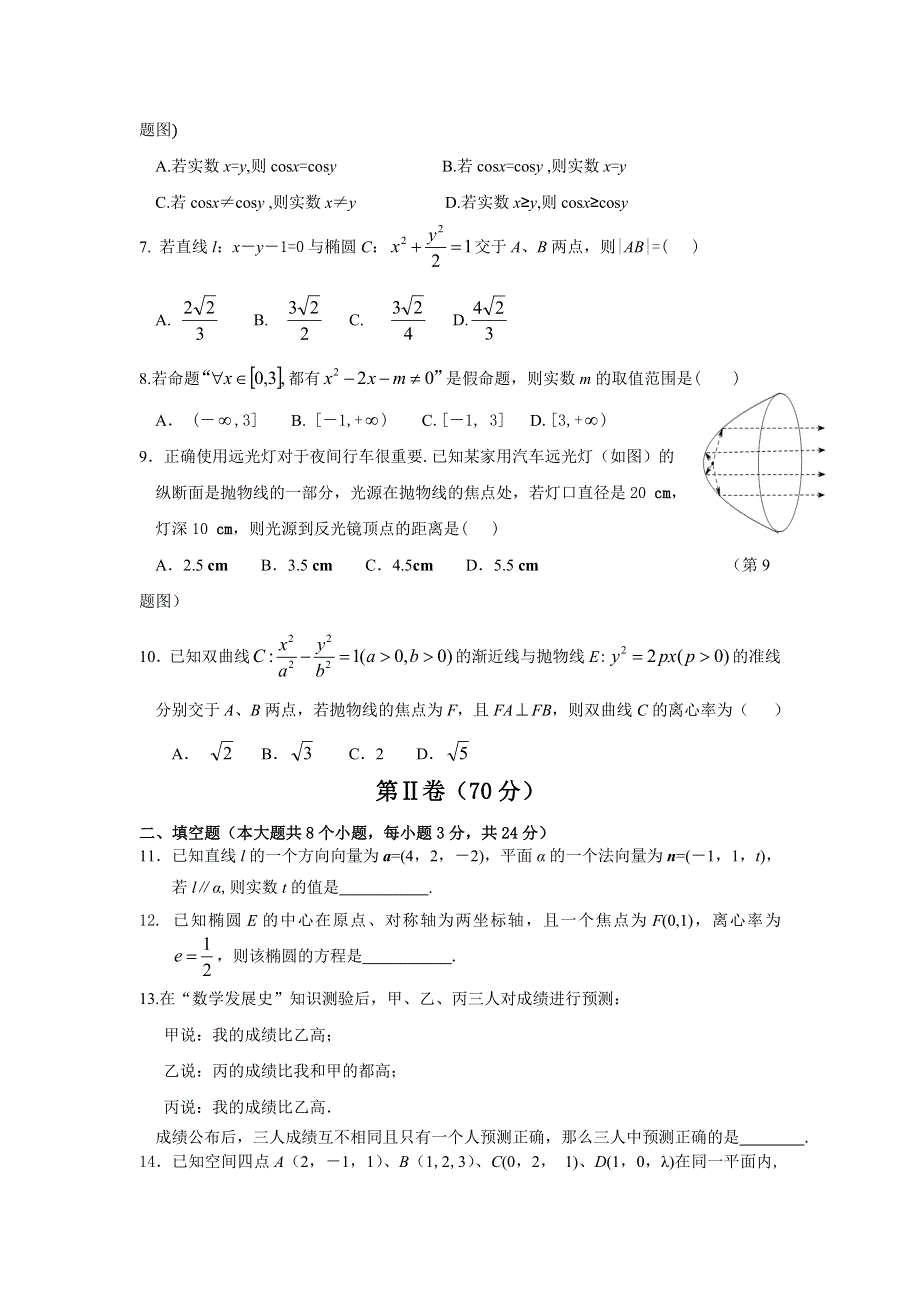 题图)
A.若实数 x=y,则 cosx=cosy B.若 cosx=cosy ,则实数 x=y
C.若 cosx≠cosy ,则实数 x≠y D.若实数 x≥y,则 cosx≥cosy
7. 若直线 l：x－y－1=0 与椭圆 C：x²+y²/2=1交于 A、B 两点，则|AB|=( )
A. 2√2/3 B. 3√2/2 C. 3√2/4 D. 4√2/3
8.若命题“∀x∈[0,3],都有 x²−2x−m≠0”是假命题，则实数 m 的取值范围是( )
A. (－∞,3] B. [－1,+∞) C. [－1, 3] D. [3,+∞)
9．正确使用远光灯对于夜间行车很重要.已知某家用汽车远光灯（如图）的
纵断面是抛物线的一部分，光源在抛物线的焦点处，若灯口直径是 20 cm，
灯深 10 cm，则光源到反光镜顶点的距离是( )
A．2.5 cm B．3.5 cm C．4.5cm D．5.5 cm （第 9
题图）
10．已知双曲线 C:x²/a²−y²/b²=1(a>0,b>0)的渐近线与抛物线 E: y²=2px(p>0)的准线
分别交于 A、B 两点，若抛物线的焦点为 F，且 FA⊥FB，则双曲线 C 的离心率为（ ）
A． √2 B．√3 C．2 D．√5
第Ⅱ卷（70 分）
二、填空题（本大题共 8 个小题，每小题 3 分，共 24 分）
11．已知直线 l 的一个方向向量为 a=(4，2，－2)，平面 α 的一个法向量为 n=(－1，1，t)，
若 l∥α,则实数 t 的值是___________.
12. 已知椭圆 E 的中心在原点、对称轴为两坐标轴，且一个焦点为 F(0,1)，离心率为
e=1/2，则该椭圆的方程是___________.
13.在“数学发展史”知识测验后，甲、乙、丙三人对成绩进行预测：
甲说：我的成绩比乙高；
乙说：丙的成绩比我和甲的都高；
丙说：我的成绩比乙高．
成绩公布后，三人成绩互不相同且只有一个人预测正确，那么三人中预测正确的是________．
14．已知空间四点 A（2，－1，1）、B（1,2,3）、C(0，2， 1)、D(1，0，λ)在同一平面内,